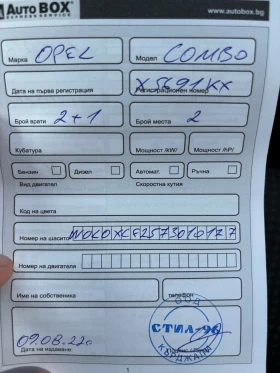 AUTO BOX www.autobox.bg
EXPRESS SERVICE
OPEL COMBO
Марка Модел
X5691KX
Дата на първа регистрация Регистрационен номер
2+1 2
Брой врати Брой места
Кубатура Мощност /kW/ Мощност /hP/
Бензин Дизел Автомат. Ръчна
Вид двигател Скоростна кутия
Код на цвета
Номер на шаси
Номер на двигателя
Име на собственика телефон
ООД
СТИЛ-96
КЪРДЖАЛИ
09.08.22г
Дата на издаване
1